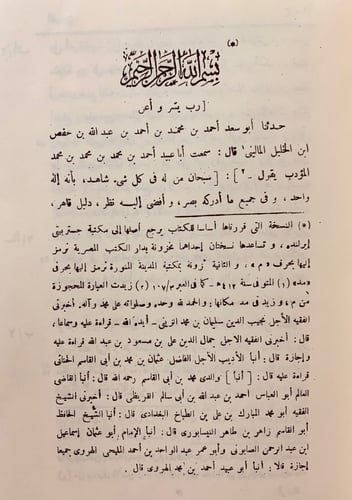 (*)
بسم الله الرحمن الرحيم
[ رب يسر و أعن
حدثنا أبو سعد أحمد بن محمد بن أحمد بن عبد الله بن حفص
ابن الخليل الماليني قال: سمعت أبا عبيد أحمد بن محمد بن محمد بن محمد
المؤدب يقول ـ٢ ] : [ سبحان من له فى كل شىء شاهد، بأنه إله
واحد، و فى جميع ما أدركه بصر، و أفضى إليه نظر، دليل قاهر،
(*) النسخة التى قررناها أساسا للكتاب يرجع أصلها إلى مكتبة جستربيتى
إيرلنده، و تساعدها نسختان إحداهما مخزونة بدار الكتب المصرية نرمز
إليها بحرف «م» و الثانية مخزونة بمكتبة المدينة المنورة نرمز إليها بحرفى
«مد» (١) المتوفى سنة ٤١٢ هـ كما فى العبر ١٠٧/٣ (٢) زيدت العبارة المحجوزة
من م، و زيد فى مد مكانها: و الحمد لله وحده وصلواته على محمد وآله. أخبرنى
الفقيه الأجل نجيب الدين سليمان بن محمد ـ أيده الله ـ قراءة عليه وسماعا،
قال: أخبرنى الفقيه الأجل جمال الدين على بن مسعود بن عبد الله قراءة عليه
وإجازة قال: أنبأ الأديب الأجل الفاضل عثمان بن محمد بن أبى القاسم
قراءة عليه قال: [ أنبأ ] والدى محمد بن أبى القاسم رحمه الله قال: أنبأ القاضى
العالم أبو العباس أحمد بن عبد الله بن أبى سالم القريظى قال: أخبرنى الشيخ
الفقيه أبو محمد المبارك بن على بن الطباخ البغدادى قال: أنبأ الشيخ الحافظ
أبو القاسم زاهر بن طاهر النيسابورى قال: أنبأ الإمام أبو عثمان إسماعيل
ابن عبد الرحمن الصابونى وأبو عمر عبد الواحد بن أحمد المليحى الهروى جميعا
إجازة قالا: أنبأ أبو عبيد أحمد بن محمد الهروى قال.